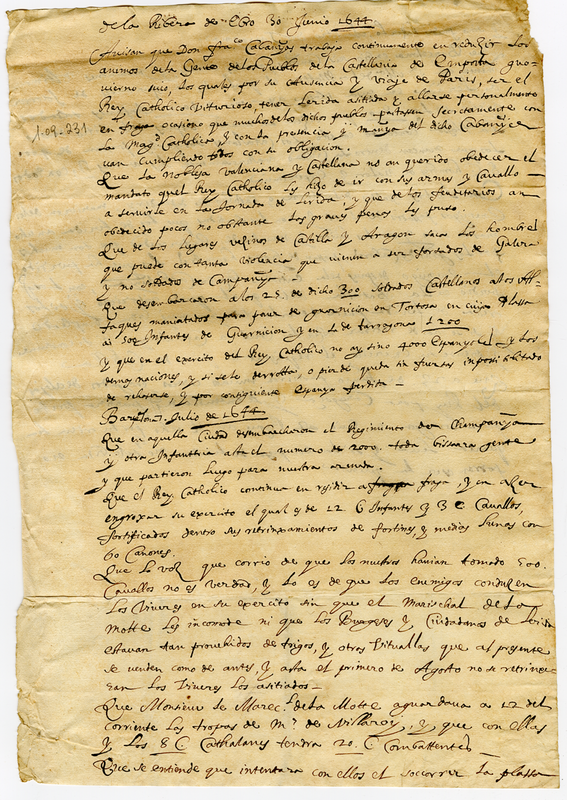 de la Ribera de Ebro 30 Junio 1644
Auisan que Don fra.co Cabanyes trabaja continuamente en reduzir los
animos de la Gente de los Pueblos de la Castellania de Emposta gou-
uierno suio, los quales por su Ausencia y viaje de Paris, ser el
Rey Catholico Vitturioso tener Lerida asitiada y allarse personalmente
en fraga ocasiono que muchos de los dichos pueblos secretamente con
la Mag.d Catholica, y con la presencia, y manya del dicho Cabanyes
van cumpliendo todos con su obligacion.
1-09-231
Que la Noblesa Valenciana y Castellana no an querido obedecer el
mandato quel Rey Catholico les hizo de ir con sus armas y Cauallo
a seruirle en la Jornada de Lerida, y que de los feuditarios an
obedecido pocos no obstante los graues penas les puso.
Que de los lugares vezinos de Castilla y Aragon saca los hombres
que puede con tanta violencia que vienen a ser forsados de Galera
y no soldados de Campanya.
Que desembarcaron a los 25 de dicho 300 soldados Castellanos a los Al-
faques maniatados para fauer de guarnicion en Tortosa en cuya plassa
ai 500 Infantes de Guarnicion y en la de tarragona 1200
Y que en el exercito del Rey Catholico no ay sino 4000 Espanyoles y los
demas naciones, y si se le derrotta, o pierde queda sin fuersas imposibilitado
de rehaserse, y por consiguiente Espanya perdita
Barçelona Julio de 1644
Que en aquella Ciudad desembarcaron el Regimiento de Champanya
y otra Infanteria asta el numero de 2000. toda bissarra gente
y que partieron luego para nuestra armada.
Que el Rey Catholico continua en residir a fraga, y en aser
engrossar su exercito el qual es de 12 C Infantes y 3 C Cauallos,
fortificados dentro sus retrinxamientos de fortines, y medias lunas con
60 Cañones.
Que la voz que corrio de que los nuestros hauian tomado 500.
Cauallos no es verdad, y lo es de que los enemigos conduzen
los Viueres en su exercito sin que el Marischal de la
Motte les incomode ni que los Burgeses y Ciudadanos de Lerida
estauan tan prouehidos de trigos, y otras Vituallas que al presente
se venden como de antes, y asta el primero de Agosto no se retrinxe-
ran los Viueres los asitiados
Que Monsieur de Marec.l de la Motte aguardaua a 12 del
corriente las tropas de M.r de Villaroy, y que con ellas
y los 8 C Cathalanes tendra 20. C Combattentes
Que se entiende que intentara con ellos el soccorrer la plassa